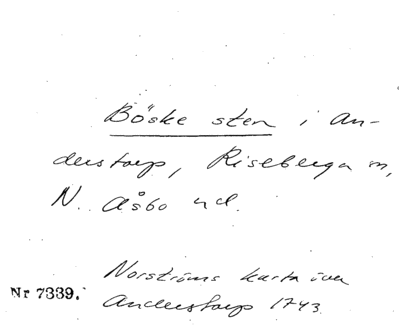 Böske sten i An-
derstorp, Riseberga sn,
N. Åsbo hd.
Norströms karta över
Nr 7339.
Anderstorp 1743.